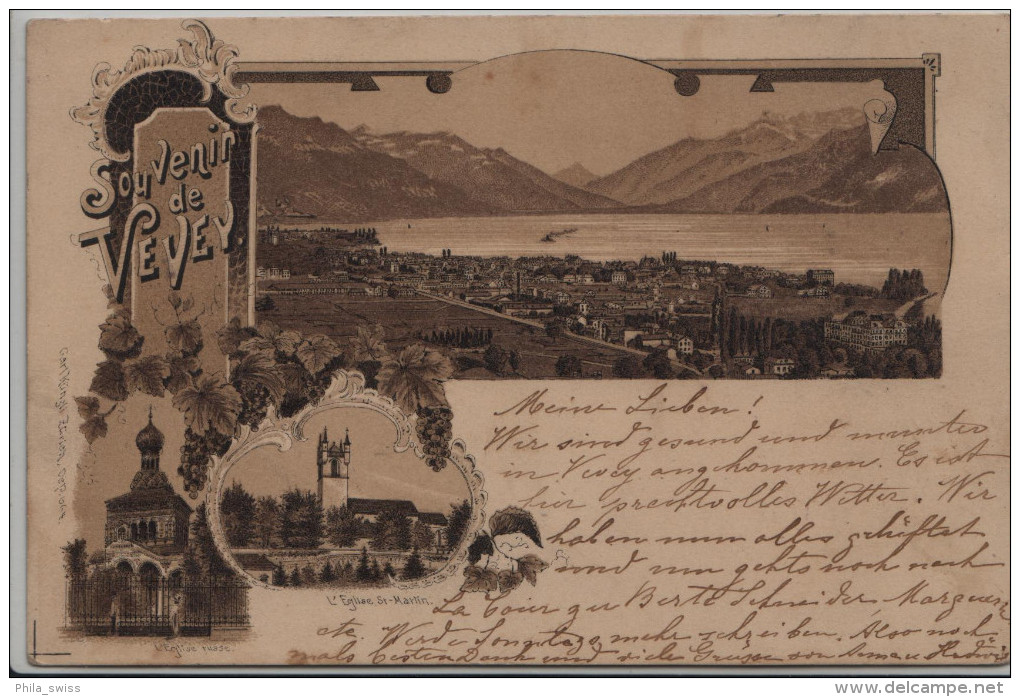 Souvenir
de
VEVEY.
L'Eglise St-Martin.
L'Eglise russe.
Meine Lieben!
Wir sind gesund und munter
in Vevey angekommen. Es ist
hier prachtvolles Wetter. Wir
haben nun alles geheftet
und nun gehts noch nach
La Tour zu Berte Schneider, Margueri-
te. Werde Sonntags mehr schreiben. Also noch-
mals besten Dank und viele Grüsse von Anna u Hedwig
Phila_swiss
www.delcampe.net